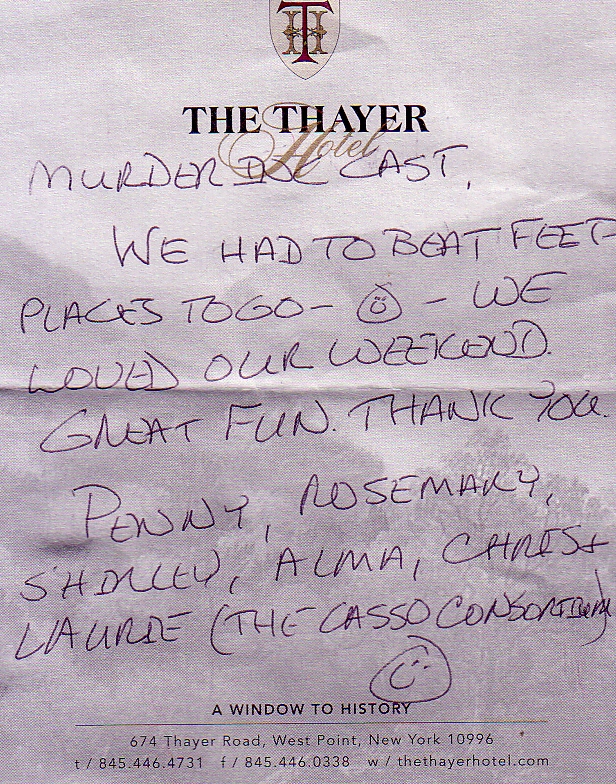 TH
THE THAYER
Hotel
MURDER INC CAST,
WE HAD TO BEAT FEET-
PLACES TO GO - - WE
LOVED OUR WEEKEND.
GREAT FUN. THANK YOU.
PENNY, ROSEMARY,
SHIRLEY, ALMA, CHRIS +
LAURIE (THE CASSO CONSORTIUM)
A WINDOW TO HISTORY
674 Thayer Road, West Point, New York 10996
t / 845.446.4731 f / 845.446.0338 w / thethayerhotel.com